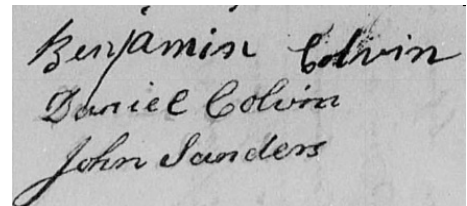 Benjamin Colvin
Daniel Colvin
John Sanders